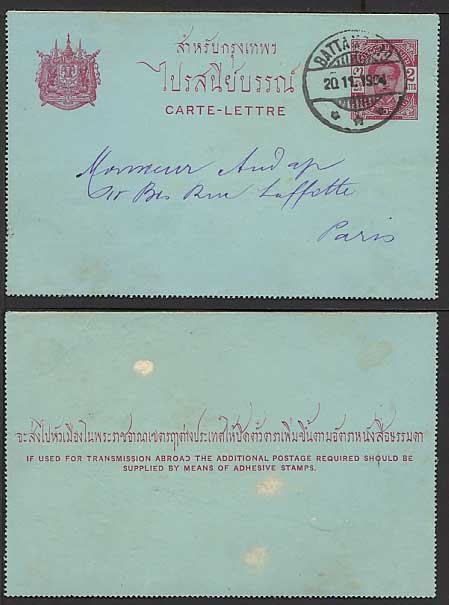 สำหรับกรุงเทพฯ
ไปรสนียบรรณ์
CARTE-LETTRE
20 11 1904
2
Monsieur
Bis Rue Laffette
Paris
จะส่งไปหัวเมืองในพระราชอาณาเขตรฤๅต่างประเทศให้ปิดตั๋วตราเพิ่มขึ้นตามอัตราหนังสือธรรมดา
IF USED FOR TRANSMISSION ABROAD THE ADDITIONAL POSTAGE REQUIRED SHOULD BE
SUPPLIED BY MEANS OF ADHESIVE STAMPS.